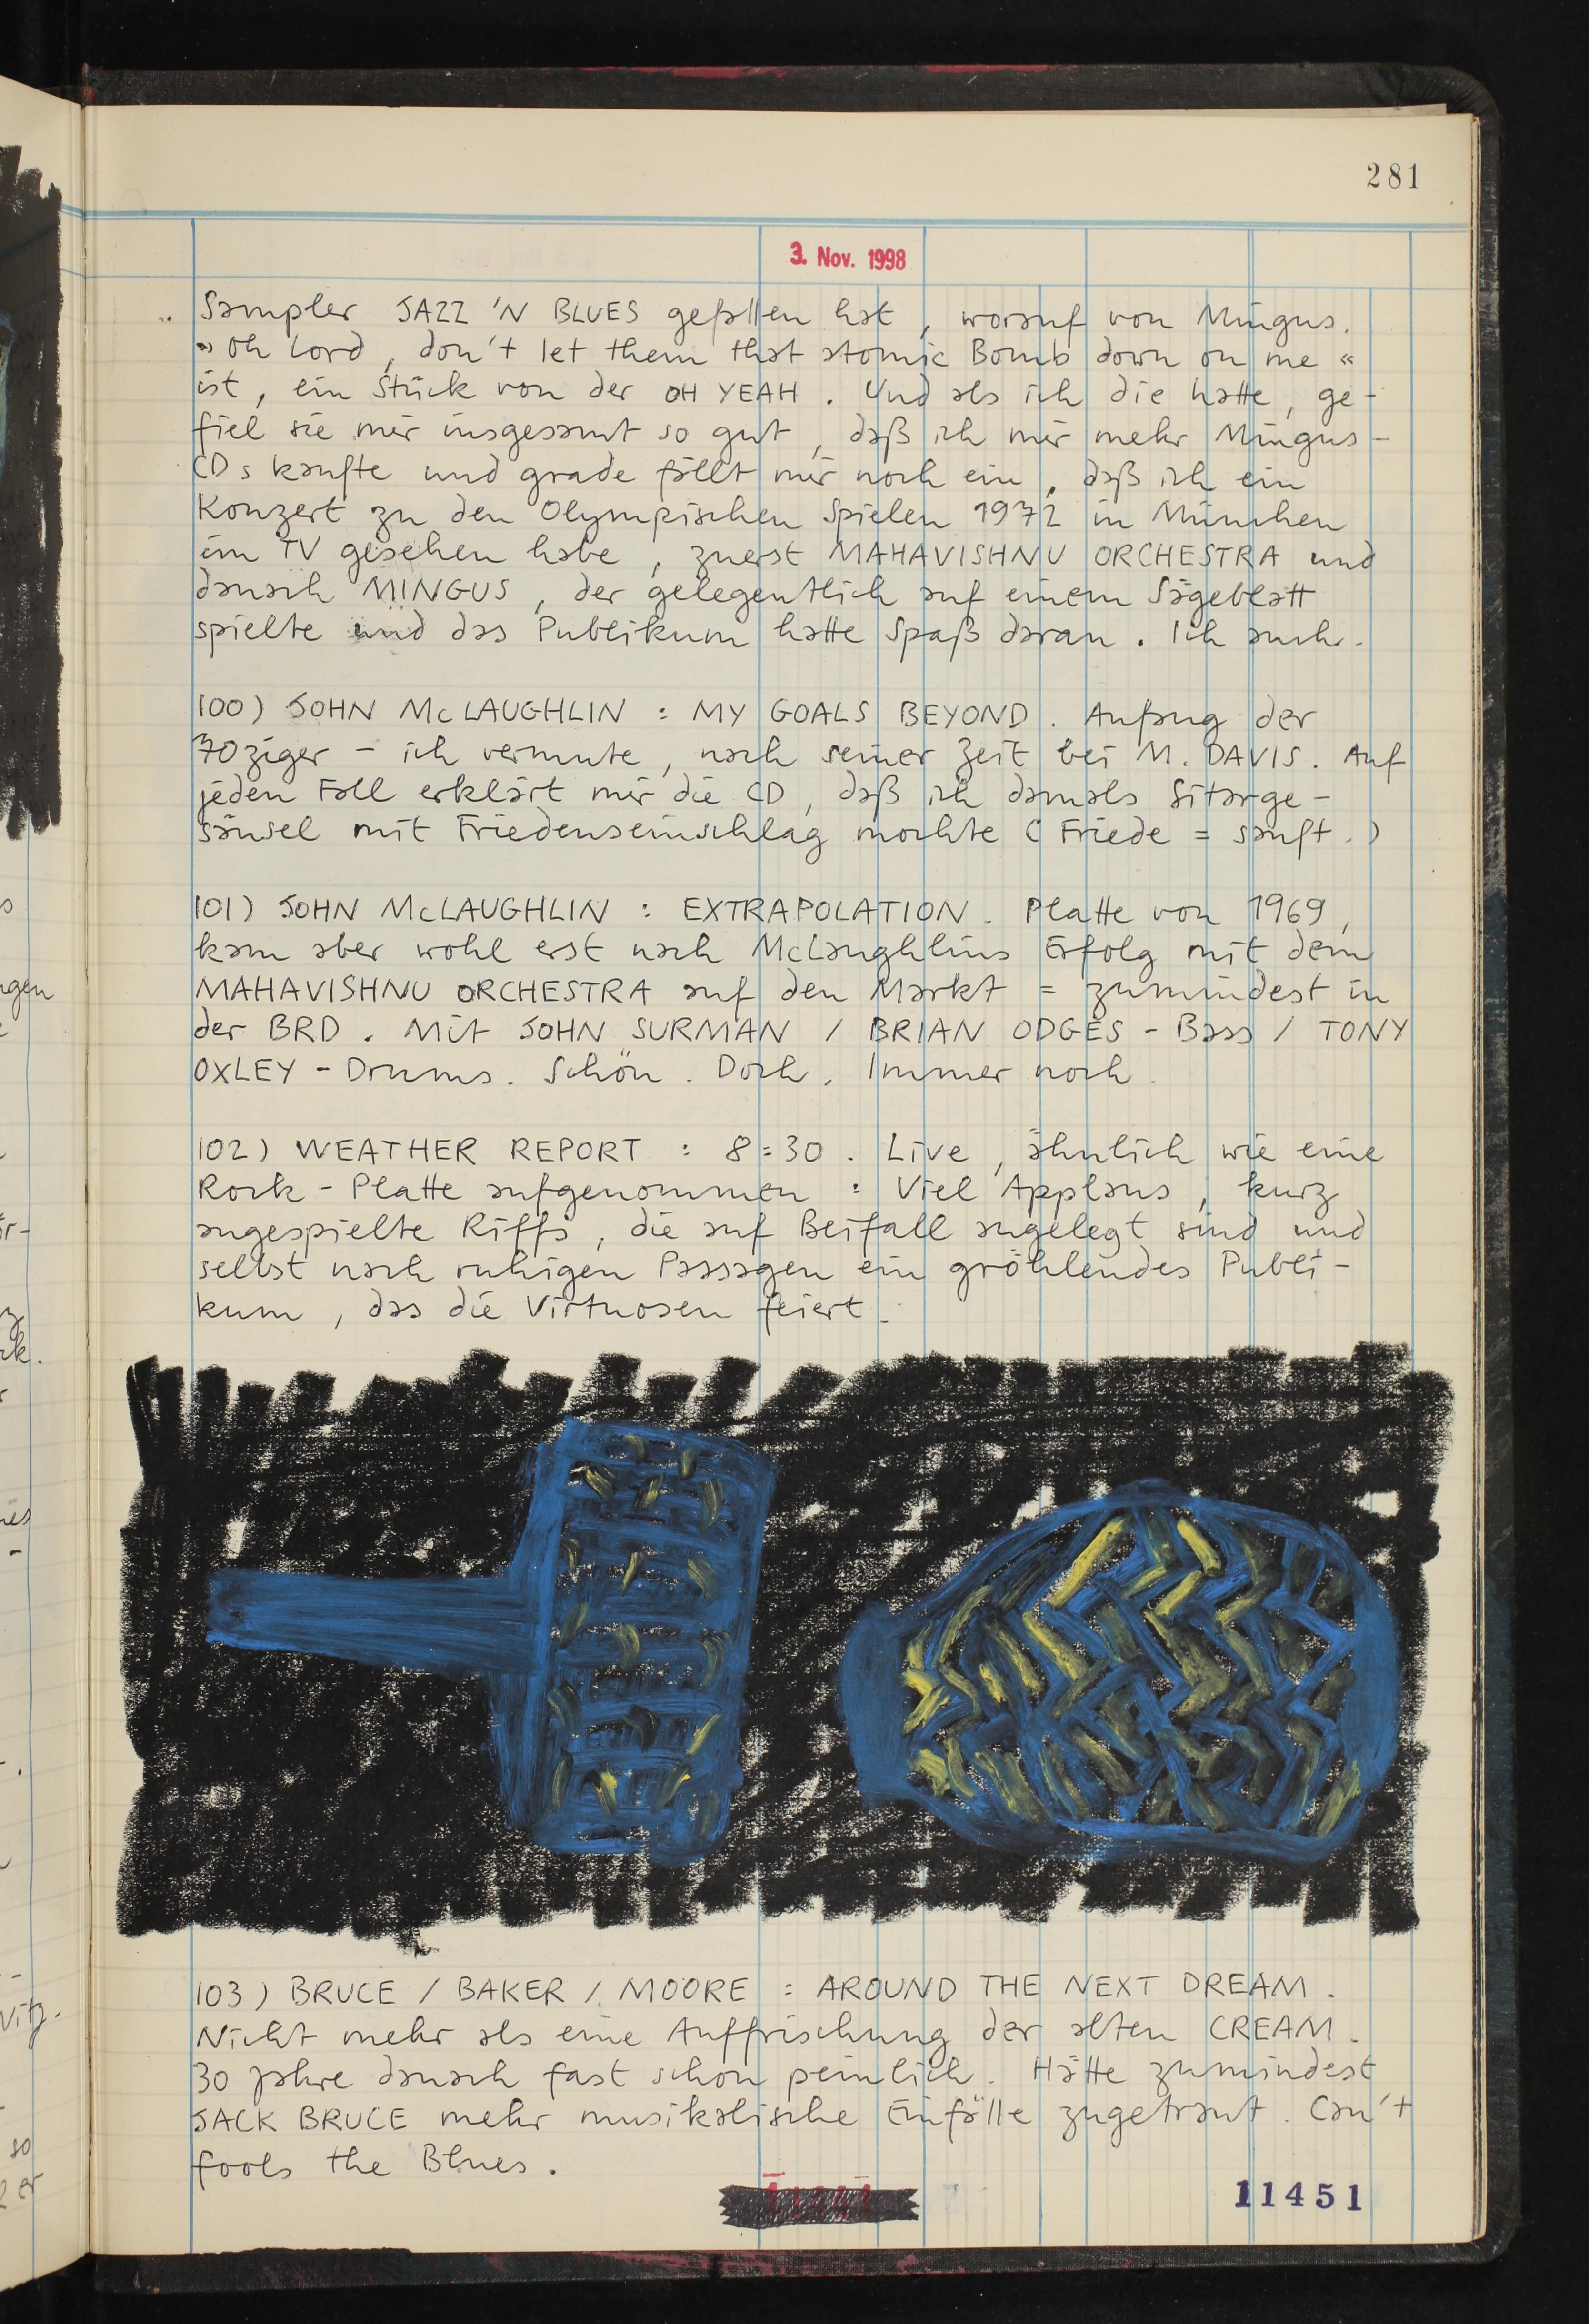 281
3. Nov. 1998
Sampler JAZZ 'N BLUES gefallen hat, worauf von Mingus.
"Oh Lord, don't let them that atomic Bomb down on me"
ist, ein Stück von der OH YEAH. Und als ich die hatte, ge-
fiel sie mir insgesamt so gut, daß ich mir mehr Mingus-
CDs kaufte und grade fällt mir noch ein, daß ich ein
Konzert zu den Olympischen Spielen 1972 in München
im TV gesehen habe, zuerst MAHAVISHNU ORCHESTRA und
danach MINGUS, der gelegentlich auf einem Sägeblatt
spielte und das Publikum hatte Spaß daran. Ich auch.
100) JOHN McLAUGHLIN : MY GOALS BEYOND. Anfang der
70ziger - ich vermute, nach seiner Zeit bei M. DAVIS. Auf
jeden Fall erklärt mir die CD, daß ich damals Sitarge-
säusel mit Friedenseinschlag mochte (Friede = sanft.)
101) JOHN McLAUGHLIN : EXTRAPOLATION. Platte von 1969,
kam aber wohl erst nach McLaughlins Erfolg mit dem
MAHAVISHNU ORCHESTRA auf den Markt = zumindest in
der BRD. Mit JOHN SURMAN / BRIAN ODGES - Bass / TONY
OXLEY - Drums. Schön. Doch. Immer noch.
102) WEATHER REPORT : 8:30. Live, ähnlich wie eine
Rock-Platte aufgenommen : Viel Applaus, kurz
angespielte Riffs, die auf Beifall angelegt sind und
selbst nach ruhigen Passagen ein gröhlendes Publi-
kum, das die Virtuosen feiert.
103) BRUCE / BAKER / MOORE : AROUND THE NEXT DREAM.
Nicht mehr als eine Auffrischung der alten CREAM.
30 Jahre danach fast schon peinlich. Hätte zumindest
JACK BRUCE mehr musikalische Einfälle zugetraut. Can't
fools the Blues.
11451